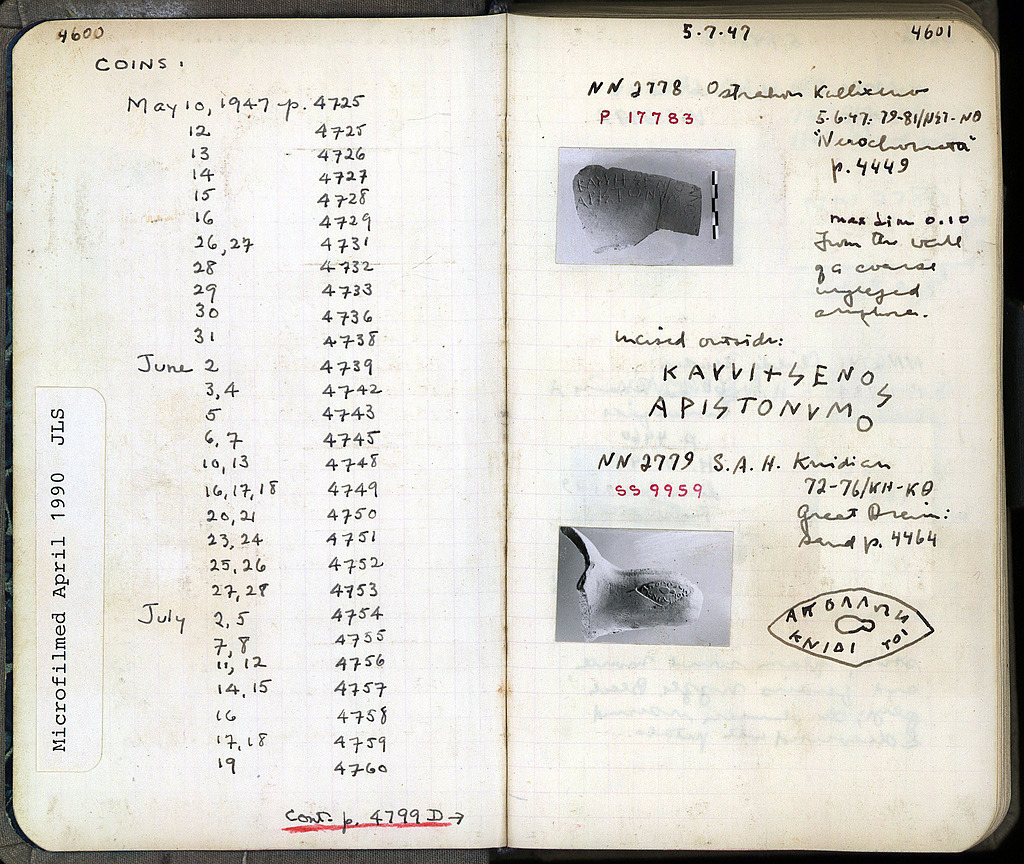 4600
COINS:
May 10, 1947 p. 4725
12 4725
13 4726
14 4727
15 4728
16 4729
26, 27 4731
28 4732
29 4733
30 4736
31 4738
June 2 4739
3, 4 4742
5 4743
6, 7 4745
10, 13 4748
16, 17, 18 4749
20, 21 4750
23, 24 4751
25, 26 4752
27, 28 4753
July 2, 5 4754
7, 8 4755
11, 12 4756
14, 15 4757
16 4758
17, 18 4759
19 4760
Cont. p. 4799 D →
Microfilmed April 1990 JLS
5.7.47
4601
NN 2778 Ostrakon Kallixenos
P 17783
5.6.47. 79-81/
p. 4449
max dim 0.10
From the wall
of a coarse
unglazed
amphora.
Incised outside:
KAVVIXSENOS
APISTONVMO
NN 2779 S.A.H. Knidian
SS 9959
72-76/KH-KΘ
Great Drain:
Sand p. 4464
ΑΠΟΛΛΩΝ
ΚΝΙΔΙ